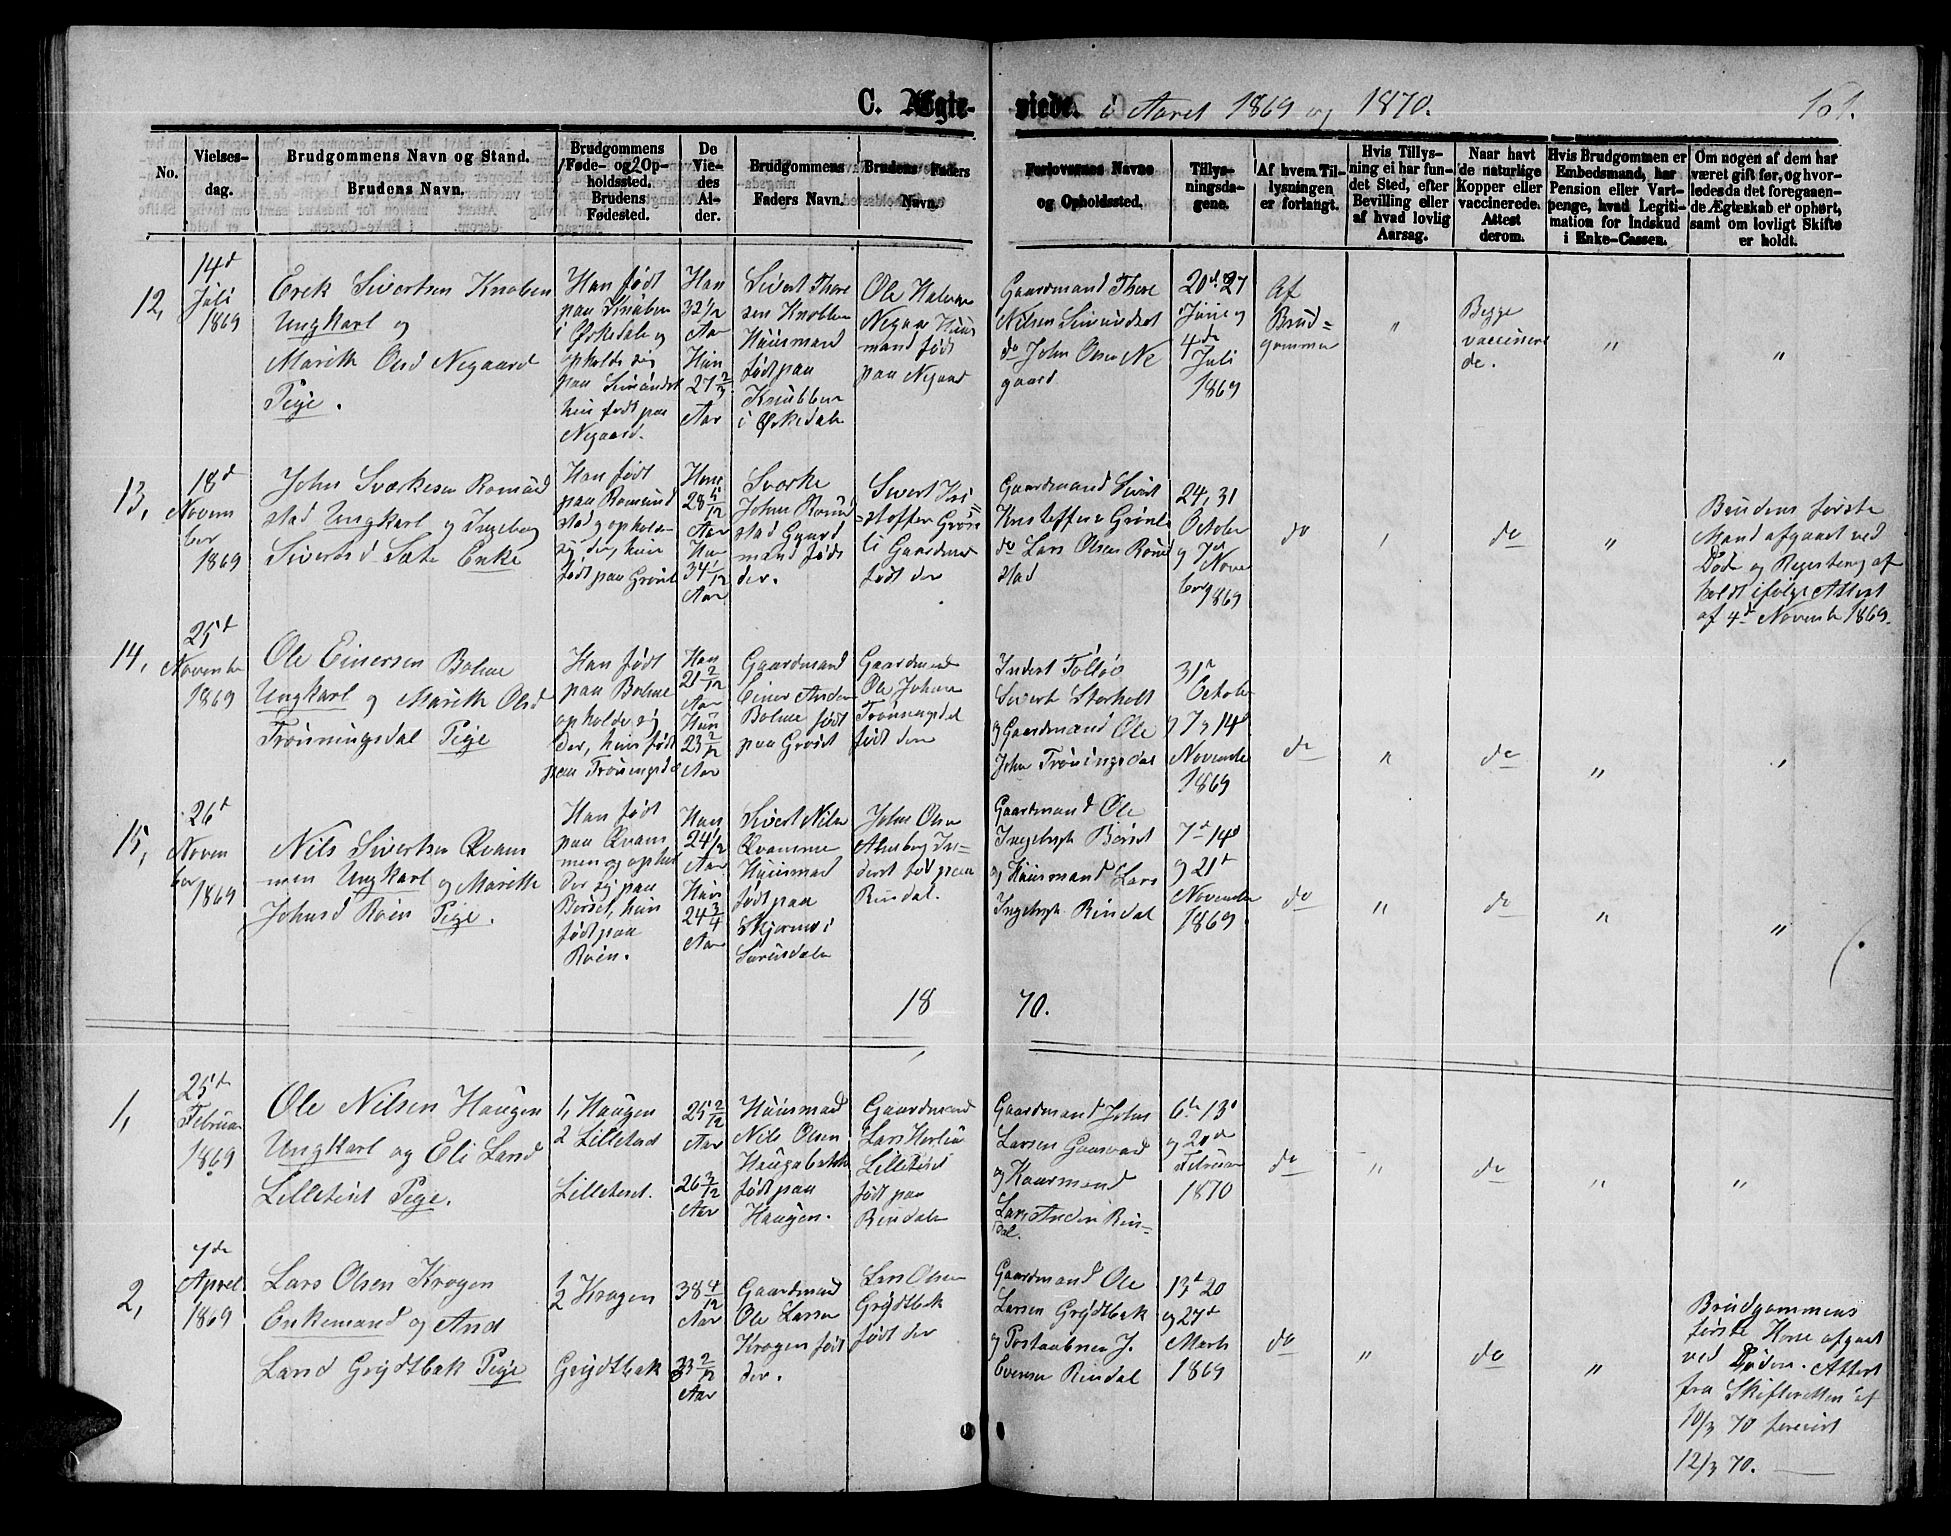 C. Ægteviede. i Aaret 1869 og 1870.
161.
No.
Vielsesdag.
Brudgommens Navn og Stand.
Brudens Navn.
Brudgommens
1 Føde- og 2 Opholdssted.
Brudens
Fødested.
De Viedes Alder.
Brudgommens
Faders Navn.
Brudens Faders
Navn.
Forlovernes Navne
og Opholdssted.
Tillysningsdagene.
Af hvem Tillysningen
er forlangt.
Hvis Tillysning ei har fundet Sted, efter
Bevilling eller
af hvad lovlig
Aarsag.
Naar havt
de naturlige
Kopper eller
vaccinerede.
Attest
derom.
Hvis Brudgommen er
Embedsmand, har
Pension eller Vartpenge, hvad Legitimation for Indskud
i Enke-Cassen.
Om nogen af dem har
været gift før, og hvorledes da det foregaaende Ægteskab er ophørt,
samt om lovligt Skifte
er holdt.
12,
14d
Juli
1869
Erek Sivertsen Knoben
Ungkarl og
Marith Olsd Negaard
Pige.
Han født
paa Knuben
i Ørkedale og
opholde sig
paa Simundset
hun født paa
Negaard.
Han
32 1/2
Aar
Hun
27 2/3
Aar
Sivert Thore
sen Knobben
Huusmand
født paa
Knubben
i Ørkedale
Ole Halvor
Negaar Huus
mand født
paa Negaard
Gaardmand Thore
Nilsen Simundset
do John Olsen Ne
gaard
20d 27
Juni og
4de
Juli
1869
Af
Brud=
gommen
"
Begge
vaccinere
de.
"
"
13,
18d
Novem
ber
1869
John Sværkesen Romund
stad Ungkarl og Ingeborg
Siversd Sæte Enke
Han født
paa Romund
stad og opholder
sig der, hun
født paa Grønli
Han
28 5/12
Aar
Hun
34 1/12
Aar
Sværke
John Romund
stad Gaard
mand født
der.
Sivert Kri
=stoffer Grøn=
li Gaardmand
født der
Gaardmand Sivert
Kristoffer Grønli
do Lars Olsen Romund
stad
24, 31
October
og 7d
Novem
ber 1869
do
"
do
"
Brudens første
Mand afgaaet ved
Døde og Registering af
holdt ifølge Attest
af 4d November 1869.
14,
25d
November
1869
Ole Einersen Bolme
Ungkarl og Marith Olsd
Trønningsdal Pige
Han født
paa Bolme
opholde sig
der, hun født
paa Trønningsdal
Han
21 2/12
Aar
Hun
23 2/12
Aar
Gaardmand
Einer Anders
Bolme født
paa Grøset
Gaardmand
Ole Johnse
Trønningsdal
født der
Inderst
Sivert Storholt
og Gaardmand Ole
John Trøningsdal
31d
October
og 7 og 14d
November
1869
do
"
do
"
"
15,
26d
Novem
ber
1869
Nils Sivertsen Qvam
men Ungkarl og Marith
Johnsd Roen Pige.
Han født
paa Qvam
men og ophol
der sig paa
Børset, hun
født paa
Roen.
Han
24 1/2
Aar
Hun
24 3/4
Aar
Sivert Nilse
Qvamme
Huusmand
født paa
Skjermo i
Surendale
John Olse
Almberg In=
derst født paa
Rindal.
Gaardmand Ole
Ingebrigt Børset
og Huusmand Lars
Ingebrigt Rindal
7d 14d
og 21d
November
1869
do
"
do
"
"
1870.
1,
25d
Februar
1869
Ole Nilsen Haugen
Ungkarl og Eli Larsd
Lilletent Pige.
1, Haugen
2 Lilletent
Lilletent.
25 2/12
Aar
26 3/12
Aar
Huusmand
Nils Olsen
født paa
Haugen.
Gaardmand
Lilletent
født paa
Rindale
Gaardmand John
Larsen Gaasvad
og Kaarmand
Lars Anders Rin=
dal.
6d 13d
og 20d
Februar
1870
do
"
do
"
"
2,
7de
Aprel
1869
Lars Olsen Krogen
Enkemand og And
Larsd Grydtbak Pige
1/2 Krogen
Grydtbak
38 4/12
Aar
33 2/12
Aar
Gaardmand
Ole Larsen
Krogen født
der.
Lars Olsen
Grydtbak
født der
Gaardmand Ole
Larsen Grydtbak
og Postaabner J.
Evensen Rindal
13d 20
og 27d
Marts
1869
do
"
do
"
Brudgommens
første Kone afgaaet
ved Døden. Attest
fra Skifteretten af
10/3 70 foreviist
12/3 70.